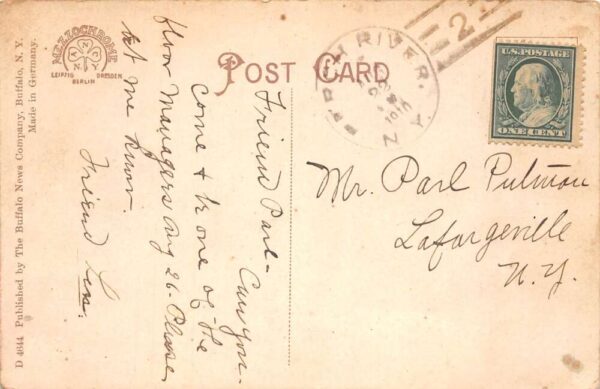 D 4644 Published by The Buffalo News Company, Buffalo, N. Y.
Made in Germany.
MEZZOCHROME
ANC
N.Y.
LEIPZIG DRESDEN
BERLIN
POST CARD
PERCH RIVER, N.Y.
1910
2
U.S. POSTAGE
ONE CENT
Friend Parl-
Can you
come & be one of the
floor managers Aug 26- Please
let me know.
Friend
Mr. Parl Putman
Lafargeville
N.Y.